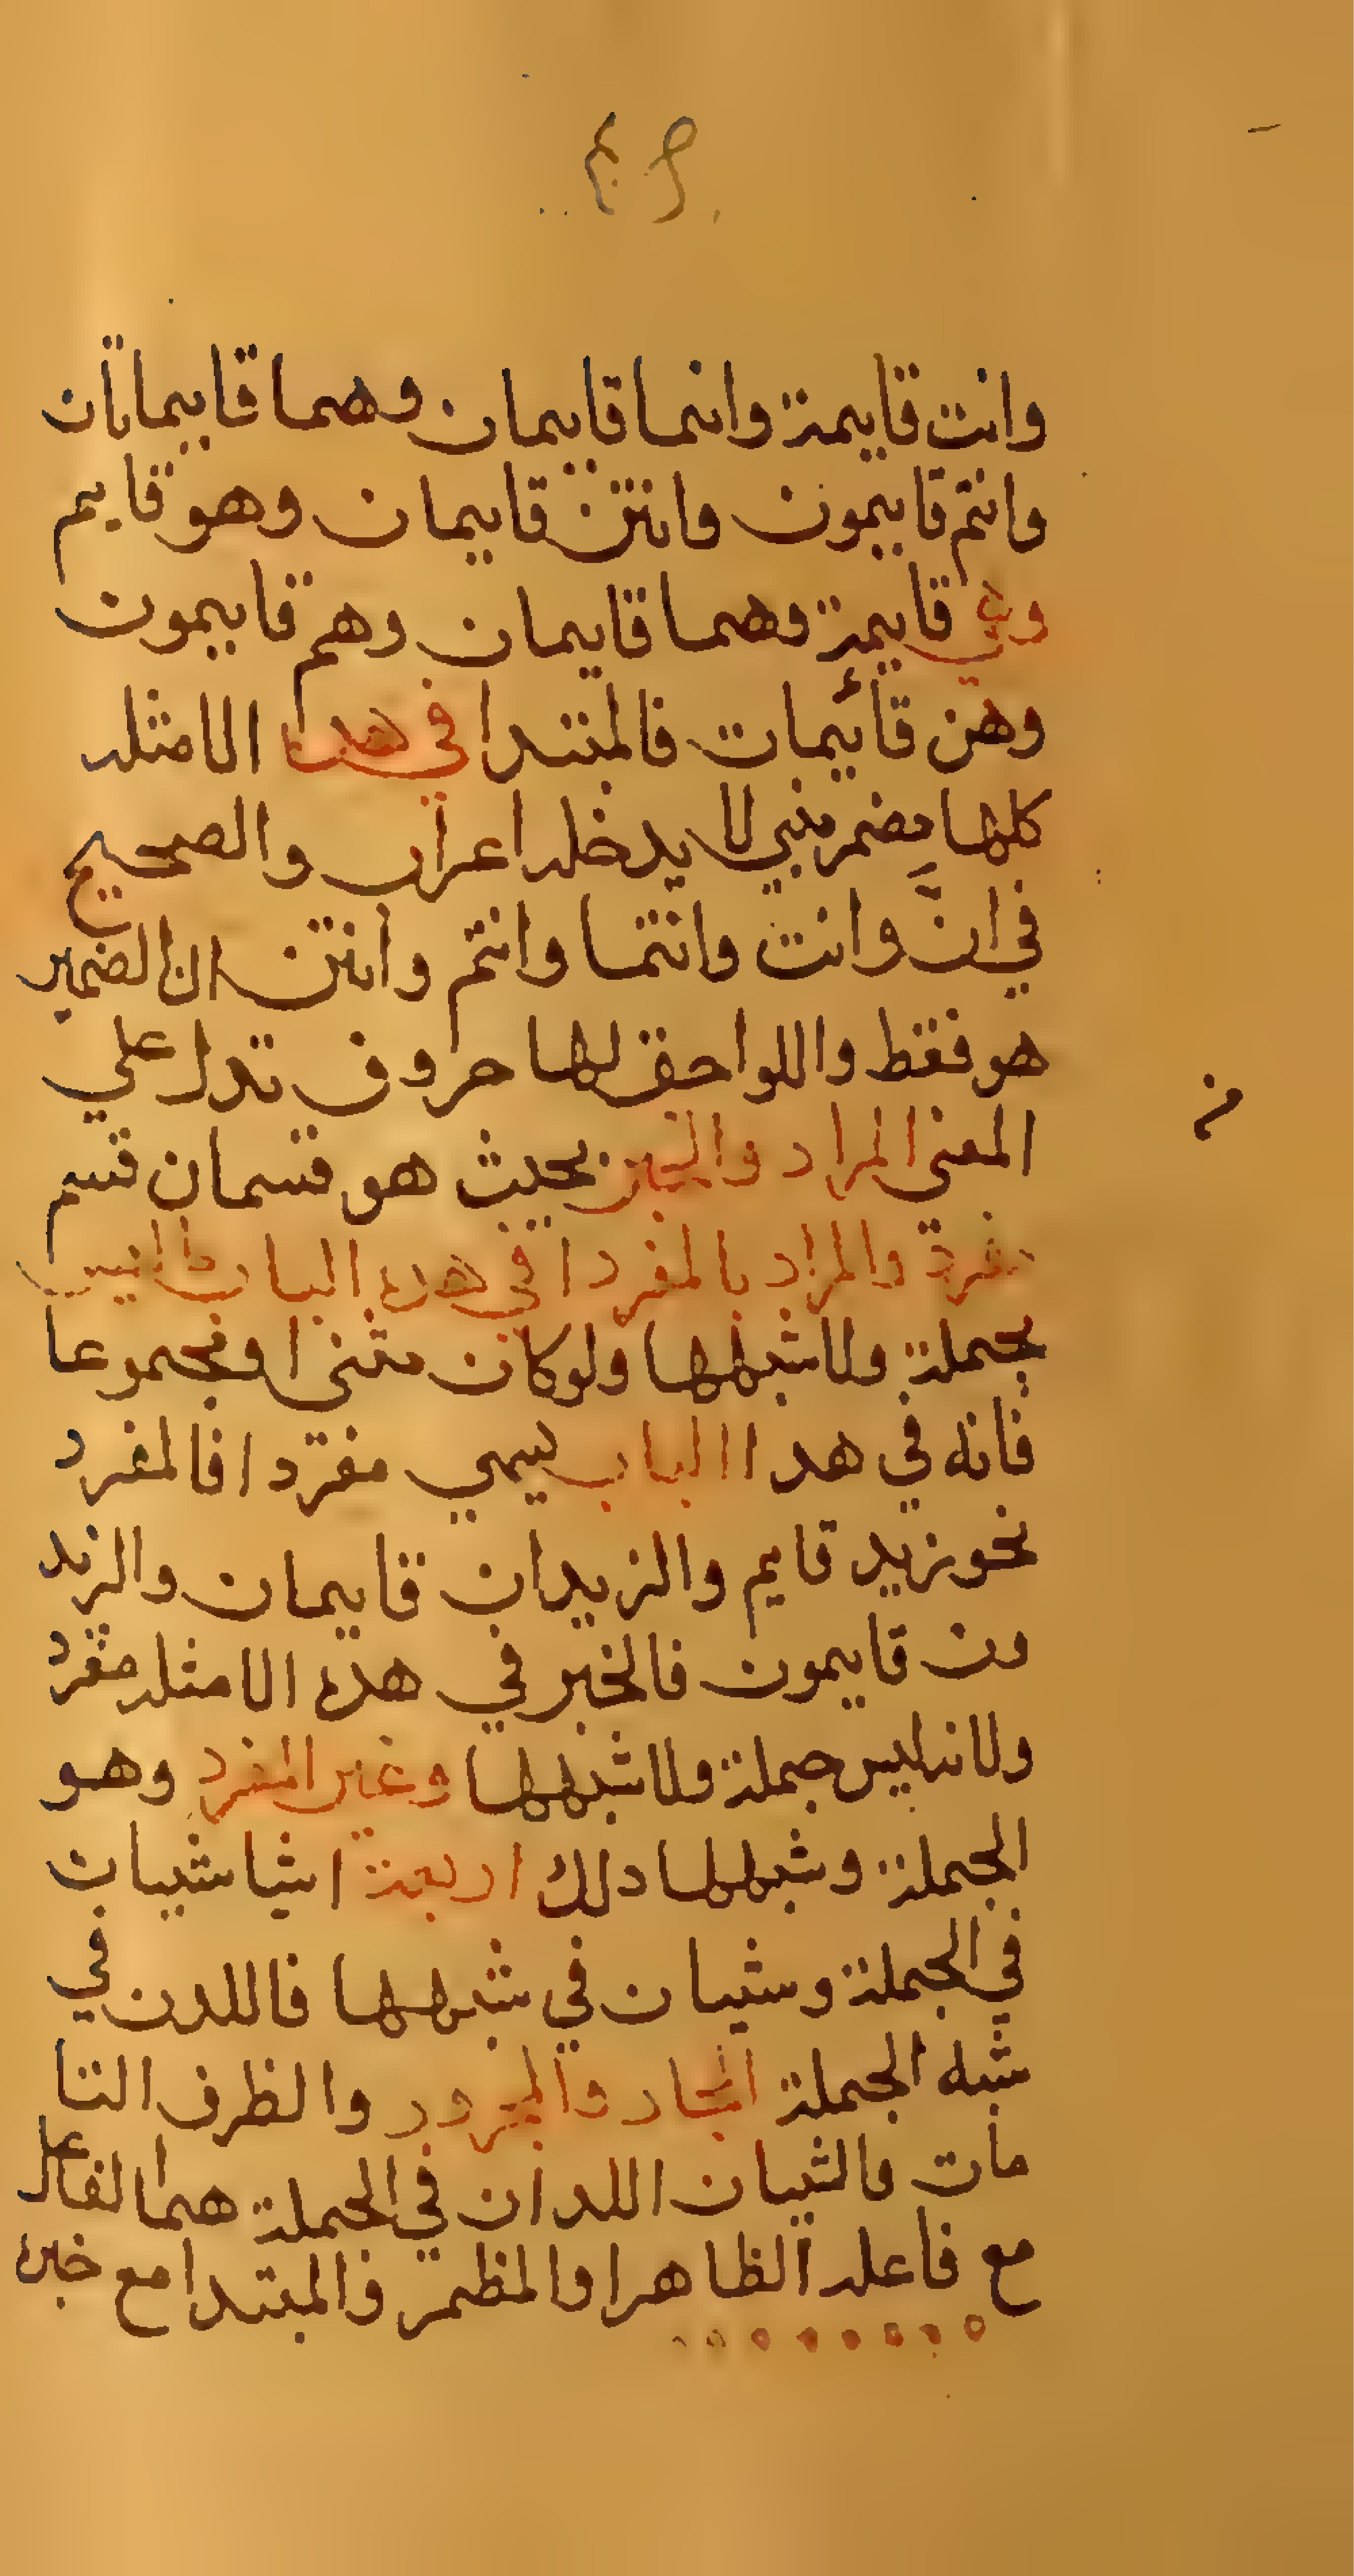 وانت قايمة وانتما قايمان وهما قايمتان
وانتم قايمون وانتن قايمات وهو قايم
وهي قايمة وهما قايمان وهم قايمون
وهن قائيمات فالمبتدا في هدا الامثله
كلها مضمر مبني لا يدخله اعراب والصحيح
في ان وانت وانتما وانتم وانتن ان الضمير
هو فقط واللواحق لها حروف تدل علي
المعني المراد والخبر بحيث هو قسمان قسم
مفرد والمراد بالمفرد ا في هده الباب ما ليس
بجملة ولا شبهها ولو كان مثنى او مجموعا
فانه في هدا الباب يسمي مفردا فالمفرد
نحو زيد قايم والزيدان قايمان والزيد
ون قايمون فالخبر في هده الامثله مفرد
ولانه ليس جملة ولا شبهها وغير المفرد وهو
الجملة وشبهها دلك اربعة اشيا شيان
في الجملة وشيان في شبهها فاللدن في
شبه الجملة الجار والمجرور والظرف التا
مات والشيان اللدان في الجملة هما الفعل
مع فاعله الظاهر او المظمر والمبتدا مع خبره